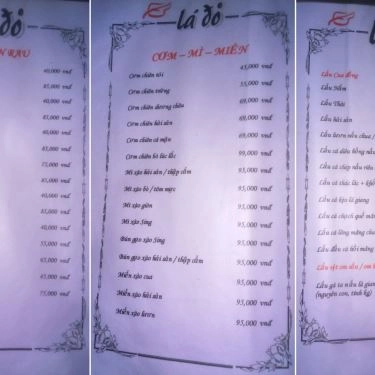 đỏ
N RAU
40,000 vnđ
85,000 vnđ
60,000 vnđ
85,000 vnđ
60,000 vnđ
85,000 vnđ
75,000 vnđ
85,000 vnđ
40,000 vnđ
85,000 vnđ
55,000 vnđ
65,000 vnđ
45,000 vnđ
75,000 vnđ
lá đỏ
CƠM – MÌ – MIẾN
Cơm chiên tỏi 45,000 vnđ
Cơm chiên trứng 55,000 vnđ
Cơm chiên dương châu 69,000 vnđ
Cơm chiên hải sản 69,000 vnđ
Cơm chiên cá mặn 69,000 vnđ
Cơm chiên bò lúc lắc 99,000 vnđ
Mì xào hải sản / thập cẩm 95,000 vnđ
Mì xào bò / tôm mực 95,000 vnđ
Mì xào giòn 95,000 vnđ
Mì xào Sing 95,000 vnđ
Bún gạo xào Sing 95,000 vnđ
Bún gạo xào hải sản / thập cẩm 95,000 vnđ
Miến xào cua 95,000 vnđ
Miến xào hải sản 95,000 vnđ
Miến xào lươn 95,000 vnđ
Lẩu Cua đồng
Lẩu Nấm
Lẩu Thái
Lẩu hải sản
Lẩu lươn nấu chua /
Lẩu cá diêu hồng nấu
Lẩu cá chép nấu riêu
Lẩu cá thác lác + khổ
Lẩu cá kèo lá giang
Lẩu cá chạch quế
Lẩu cá lăng măng chua
Lẩu đầu cá hồi măng
Lẩu vịt om sấu / om
Lẩu gà ta nấu lá giang
(nguyên con, tính kg)